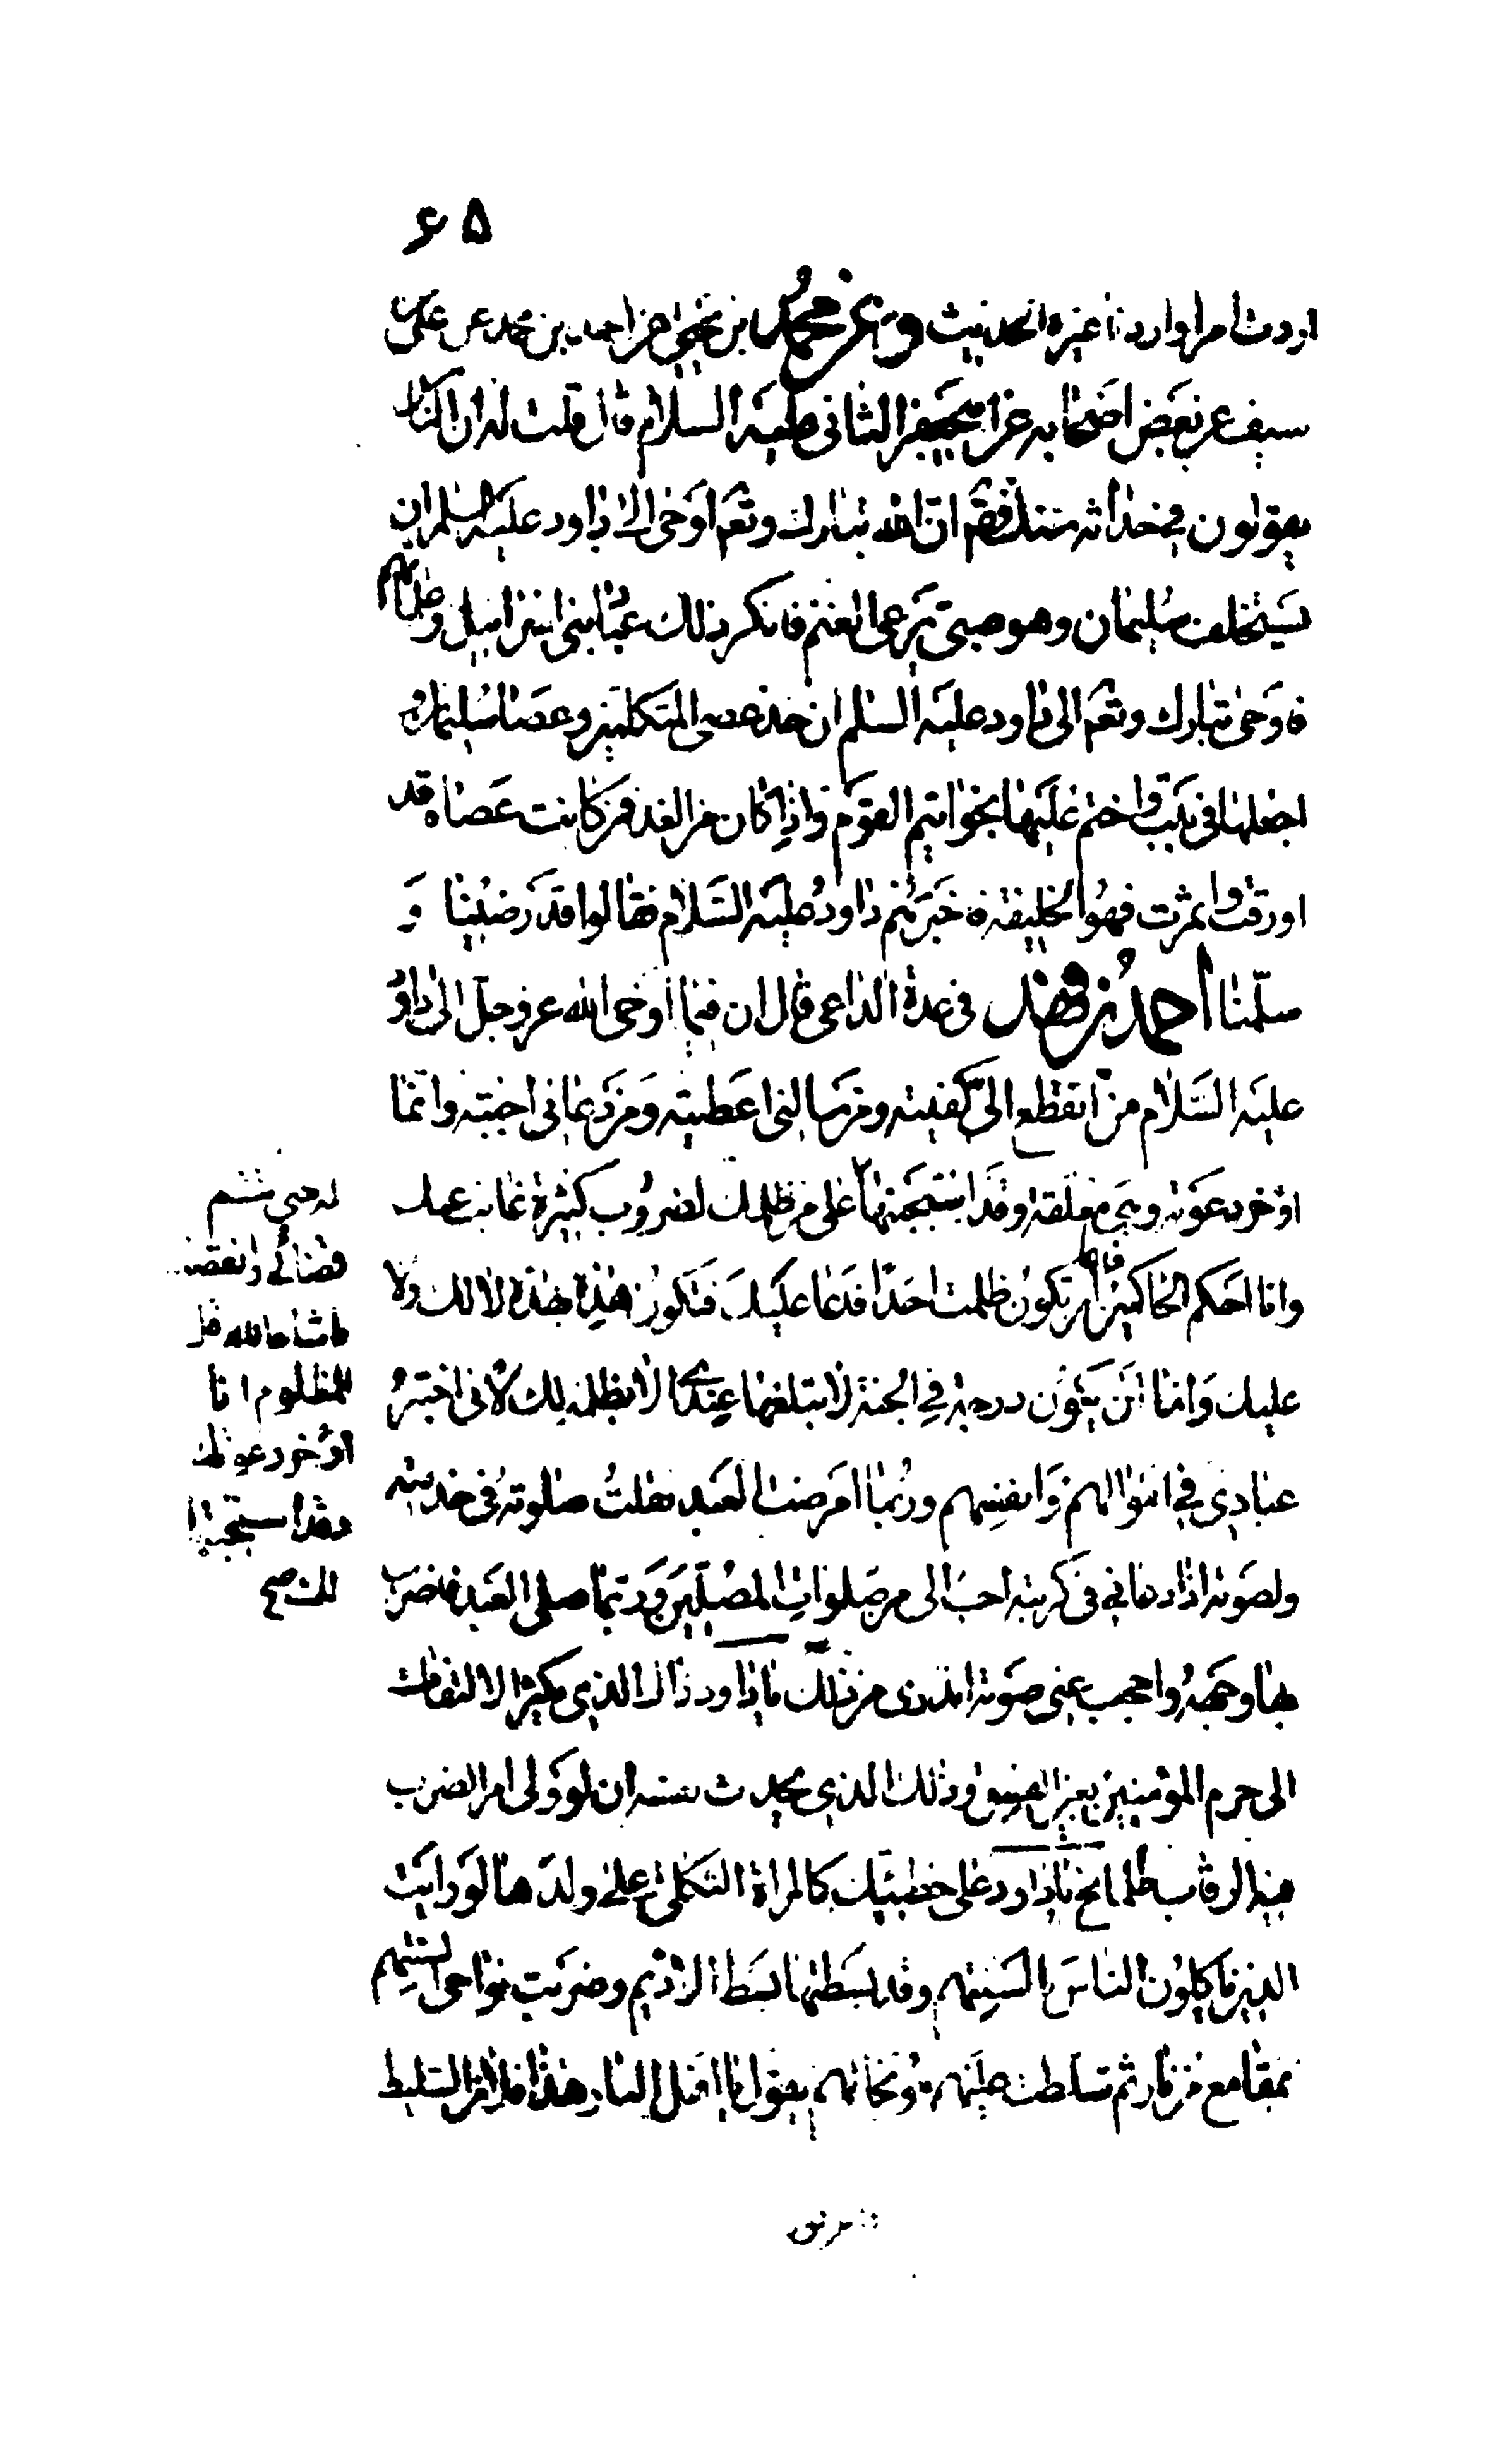 ۶۵
اردت امرا واردنا غيره الحديث وعن محمد بن يحيى عن احمد بن محمد عن علي بن
سيف عن بعض اصحابه عن ابيجعفر الثاني عليه السلام قال قلت له ان الناس
يقولون في حداثة سنك فقم ان الله تبارك وتعم اوحى الى داود عليه السلم ان
يستخلف سليمان وهو صبي يرعى الغنم فانكر ذلك عباد بني اسرائيل وعلمائهم
فاوحى تبارك وتعم الى داود عليه السلم ان خذ عصى المتكلمين وعصا سليمان و
اجعلها في بيت واختم عليها بخواتيم القوم فاذا كان من الغد فمن كانت عصاه قد
اورقت واثمرت فهو الخليفة فاخبرهم داود عليه السلام فقالوا قد رضينا و
سلمنا احمد بن فهد في عدة الداعي قال ان فيما اوحى الله عز وجل الى داود
عليه السلام من انقطع الي كفيته ومن سالني اعطيته ومن دعاني اجبته وانما
اوخر دعوته وهي معلقة وقد استجبتها على من ظلمك لضروب كثيرة غابت عنك
وانا احكم الحاكمين اما ان تكون ظلمت احدا فدعا عليك فتكون هذه بهذه لا لك ولا
عليك واما ان يكون درجة في الجنة لا تبلغها عندي الا بظلمه لك لاني اختبر
عبادي في اموالهم وانفسهم وربما امرضت العبد فقلت صلوته في خدمته
ولصوته اذا دعاني في كربته احب الى من صلوات المصلين وربما صلى العبد فاضرب
بها وجهه واحجب عني صوته اتدري من ذلك يا داود ذاك الذي يكثر الالتفات
الى حرم المؤمنين بعين الفسق وذلك الذي يحدث نفسه ان لو ولي امر الضرب
فيه الرقاب ظلما نح يا داود على خطيئتك كالمراة الثكلى على ولدها لو رايت
الذين ياكلون الناس بالسنتهم وقد بسطتها بسط الاديم وضربت نواحي السنتهم
بمقامع من نار ثم سلطت عليهم موبخا لهم يقول يا اهل النار هذا فلان السليط
له حتى يتم
قضائي وانقضت
ماشاء الله قل
للمظلوم انا
اوخر دعوتك
وقد استجبتها
لك صح